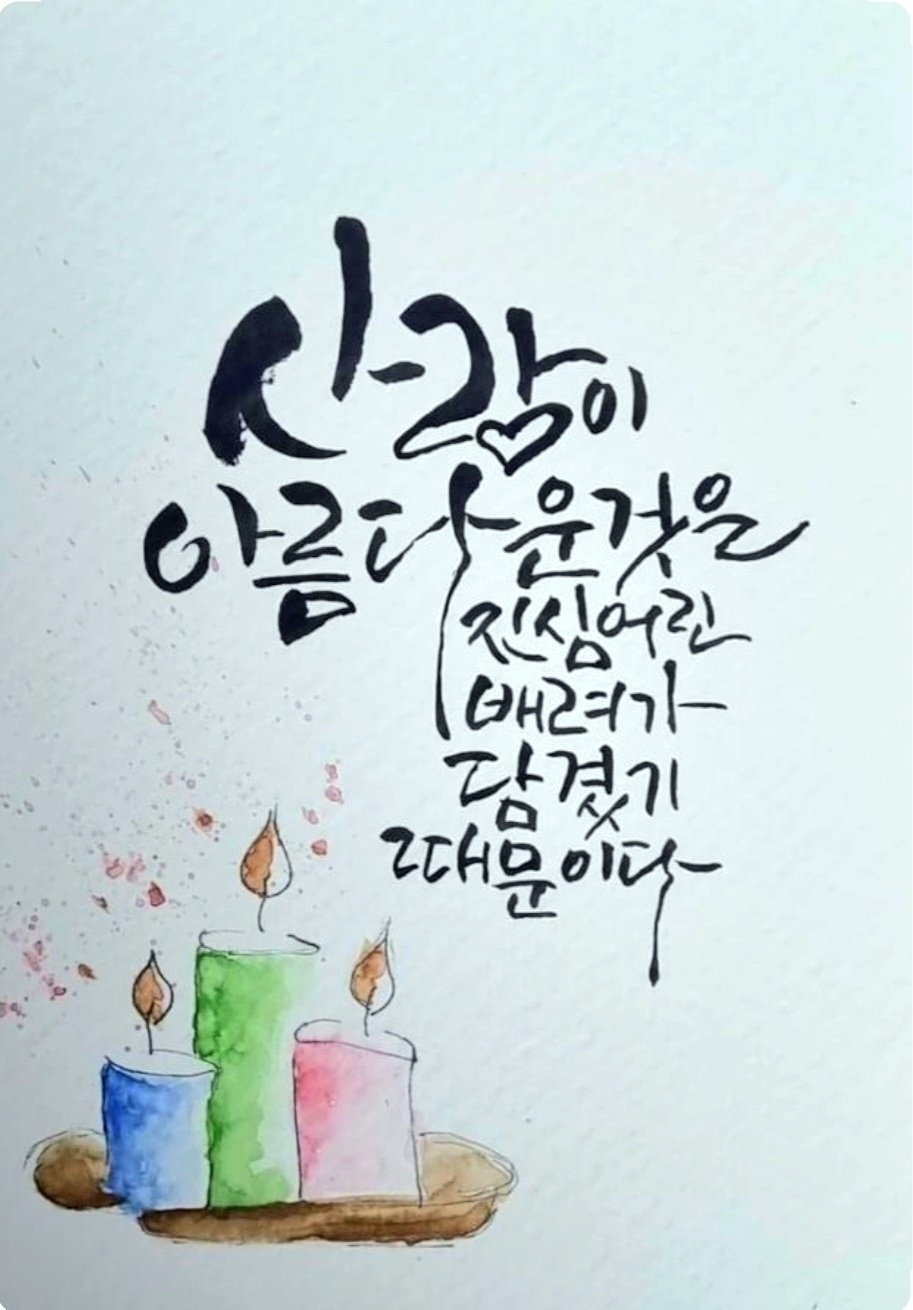 사람이
아름다운것은
진심어린
배려가
담겼기
때문이다